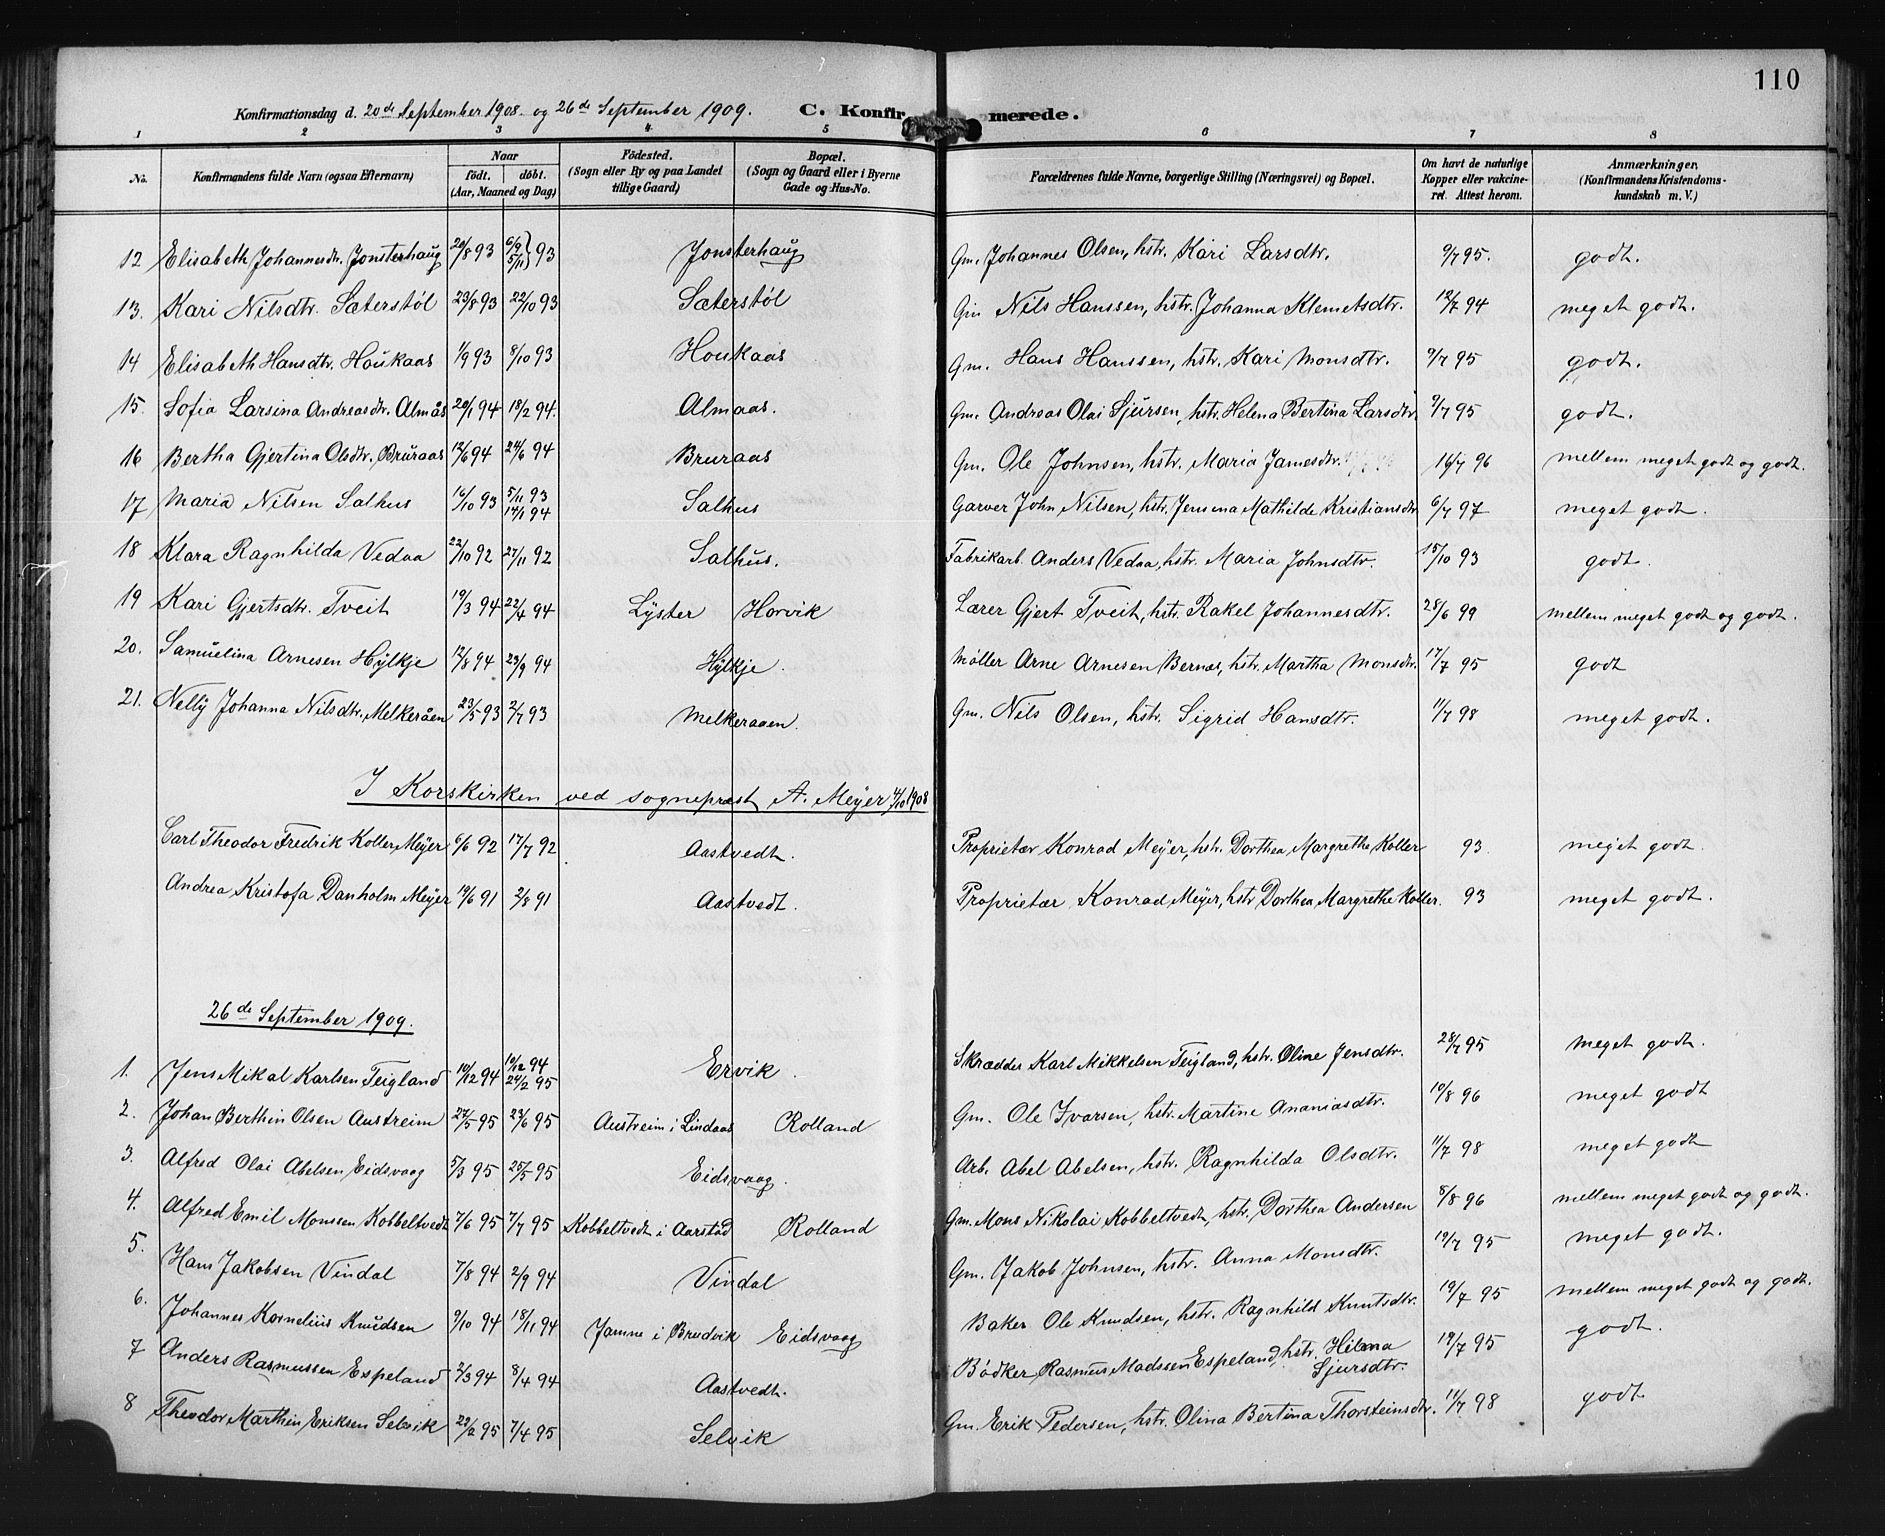 110
Konfirmationsdag d. 20de September 1908. og 26de September 1909. C. Konfirmerede.
1 2 3 4. 5 6 7 8
No. Konfirmandens fulde Navn (ogsaa Efternavn) Naar födt. döbt. (Aar, Maaned og Dag) Födested. (Sogn eller By og paa Landet tillige Gaard) Bopæl. (Sogn og Gaard eller i Byerne Gade og Hus-No. Forældrenes fulde Navne, borgerlige Stilling (Næringsvei) og Bopæl. Om havt de naturlige Kopper eller vakcineret. Attest herom. Anmærkninger. (Konfirmandens Kristendomskundskab m. V.)
12 Elisabeth Johannesdtr. Jonsterhaug 20/8 93 6/9 5/11 } 93 Jonsterhaug Gm. Johannes Olsen, hstr. Kari Larsdtr. 9/7 95. godt.
13. Kari Nilsdtr. Sæterstöl 23/8 93 22/10 93 Sæterstöl Gm Nils Hanssen, hstr. Johanna Klemetsdtr. 12/7 94 meget godt.
14 Elisabeth Hansdtr. Houkaas 1/9 93 8/10 93 Houkaas Gm. Hans Hanssen, hstr. Kari Monsdtr. 9/7 95 godt.
15. Sofia Larsina Andreasdtr. Almås 20/1 94 18/2 94. Almaas. Gm. Andreas Olai Sjursen, hstr. Helena Bertina Larsdtr. 9/7 95 godt.
16 Bertha Gjertina Olsdtr. Bruraas 12/6 94 24/6 94 Bruraas Gm. Ole Johnsen, hstr. Maria Jamesdtr. 16/7 96 mellem meget godt og godt.
17 Maria Nilsen Salhus 16/10 93 5/11 93 14/1 94 Salhus Garver John Nilsen, hstr. Jensina Mathilde Kristiansdtr 6/7 97 meget godt.
18 Klara Ragnhilda Vedaa 22/10 92 27/11 92 Salhus. Fabrikarb. Anders Vedaa, hstr. Maria Johnsdtr. 15/10 93 godt.
19 Kari Gjertsdtr. Tveit 19/3 94 22/4 94 Lyster Horvik Lærer Gjert Tveit, hstr. Rakel Johannesdtr. 28/6 99 mellem meget godt og godt.
20. Samuelina Arnesen Hylkje 12/8 94 23/9 94 Hylkje. Møller Arne Arnesen Bernas, hstr. Martha Monsdtr. 17/7 95 godt
21. Nelly Johanna Nilsdtr. Melkeråen 23/5 93 2/7 93 Melkeraaen. Gm. Nils Olsen, hstr. Sigrid Hansdtr. 11/7 98 meget godt.
I Korskirken ved sognepræst A. Meyer 4/10 1908
Carl Theodor Fredrik Koller Meyer 6/6 92 17/7 92 Aastvedt. Proprietær Konrad Meyer, hstr. Dorthea Margrethe Koller 93. meget godt.
Andrea Kristofa Danholm Meyer 19/6 91 2/8 91 Aastvedt. Proprietær Konrad Meyer, hstr Dorthea Margrethe Koller. 93 meget godt.
26de September 1909.
1. Jens Mikal Karlsen Teigland 10/12 94 10/12 94 24/2 95 Ervik. Skrædder Karl Mikkelsen Teigland, hstr. Oline Jensdtr. 28/7 95 meget godt.
2. Johan Berthin Olsen Austreim 27/5 95 23/6 95 Austreim i Lindaas Rolland Gm. Ole Ivarsen, hstr. Martine Ananiasdtr. 10/8 96 meget godt
3. Alfred Olai Abelsen Eidsvaag 5/3 95 25/5 95 Eidsvaag. Arb. Abel Abelsen, hstr. Ragnhilda Olsdtr. 11/7 98 meget godt
4. Alfred Emil Monssen Kobbeltvedt 7/6 95 7/7 95 Kobbeltvedt i Aarstad Rolland Gm. Mons Nikolai Kobbeltvedt, hstr. Dorthea Andersen 8/8 96 mellem meget godt og godt.
5. Hans Jakobsen Vindal 7/8 94 2/9 94 Vindal Gm. Jakob Johnsen, hstr. Anna Monsdtr. 19/7 95 meget godt.
6. Johannes Kornelius Knudsen 9/10 94 18/11 94 Jamne i Bruvik Eidsvaag Baker Ole Knudsen, hstr. Ragnhild Knutsdtr. 19/7 95 mellem meget godt og godt.
7 Anders Rasmussen Espeland 2/3 94 8/4 94 Aastvedt. Bödker Rasmus Madssen Espeland, hstr. Helena Sjursdtr. 19/7 95 godt.
8 Theodor Marthin Eriksen Selvik 22/2 95 7/4 95 Selvik Gm. Erik Pedersen, hstr. Olina Bertina Thorsteinsdtr. 11/7 98 godt